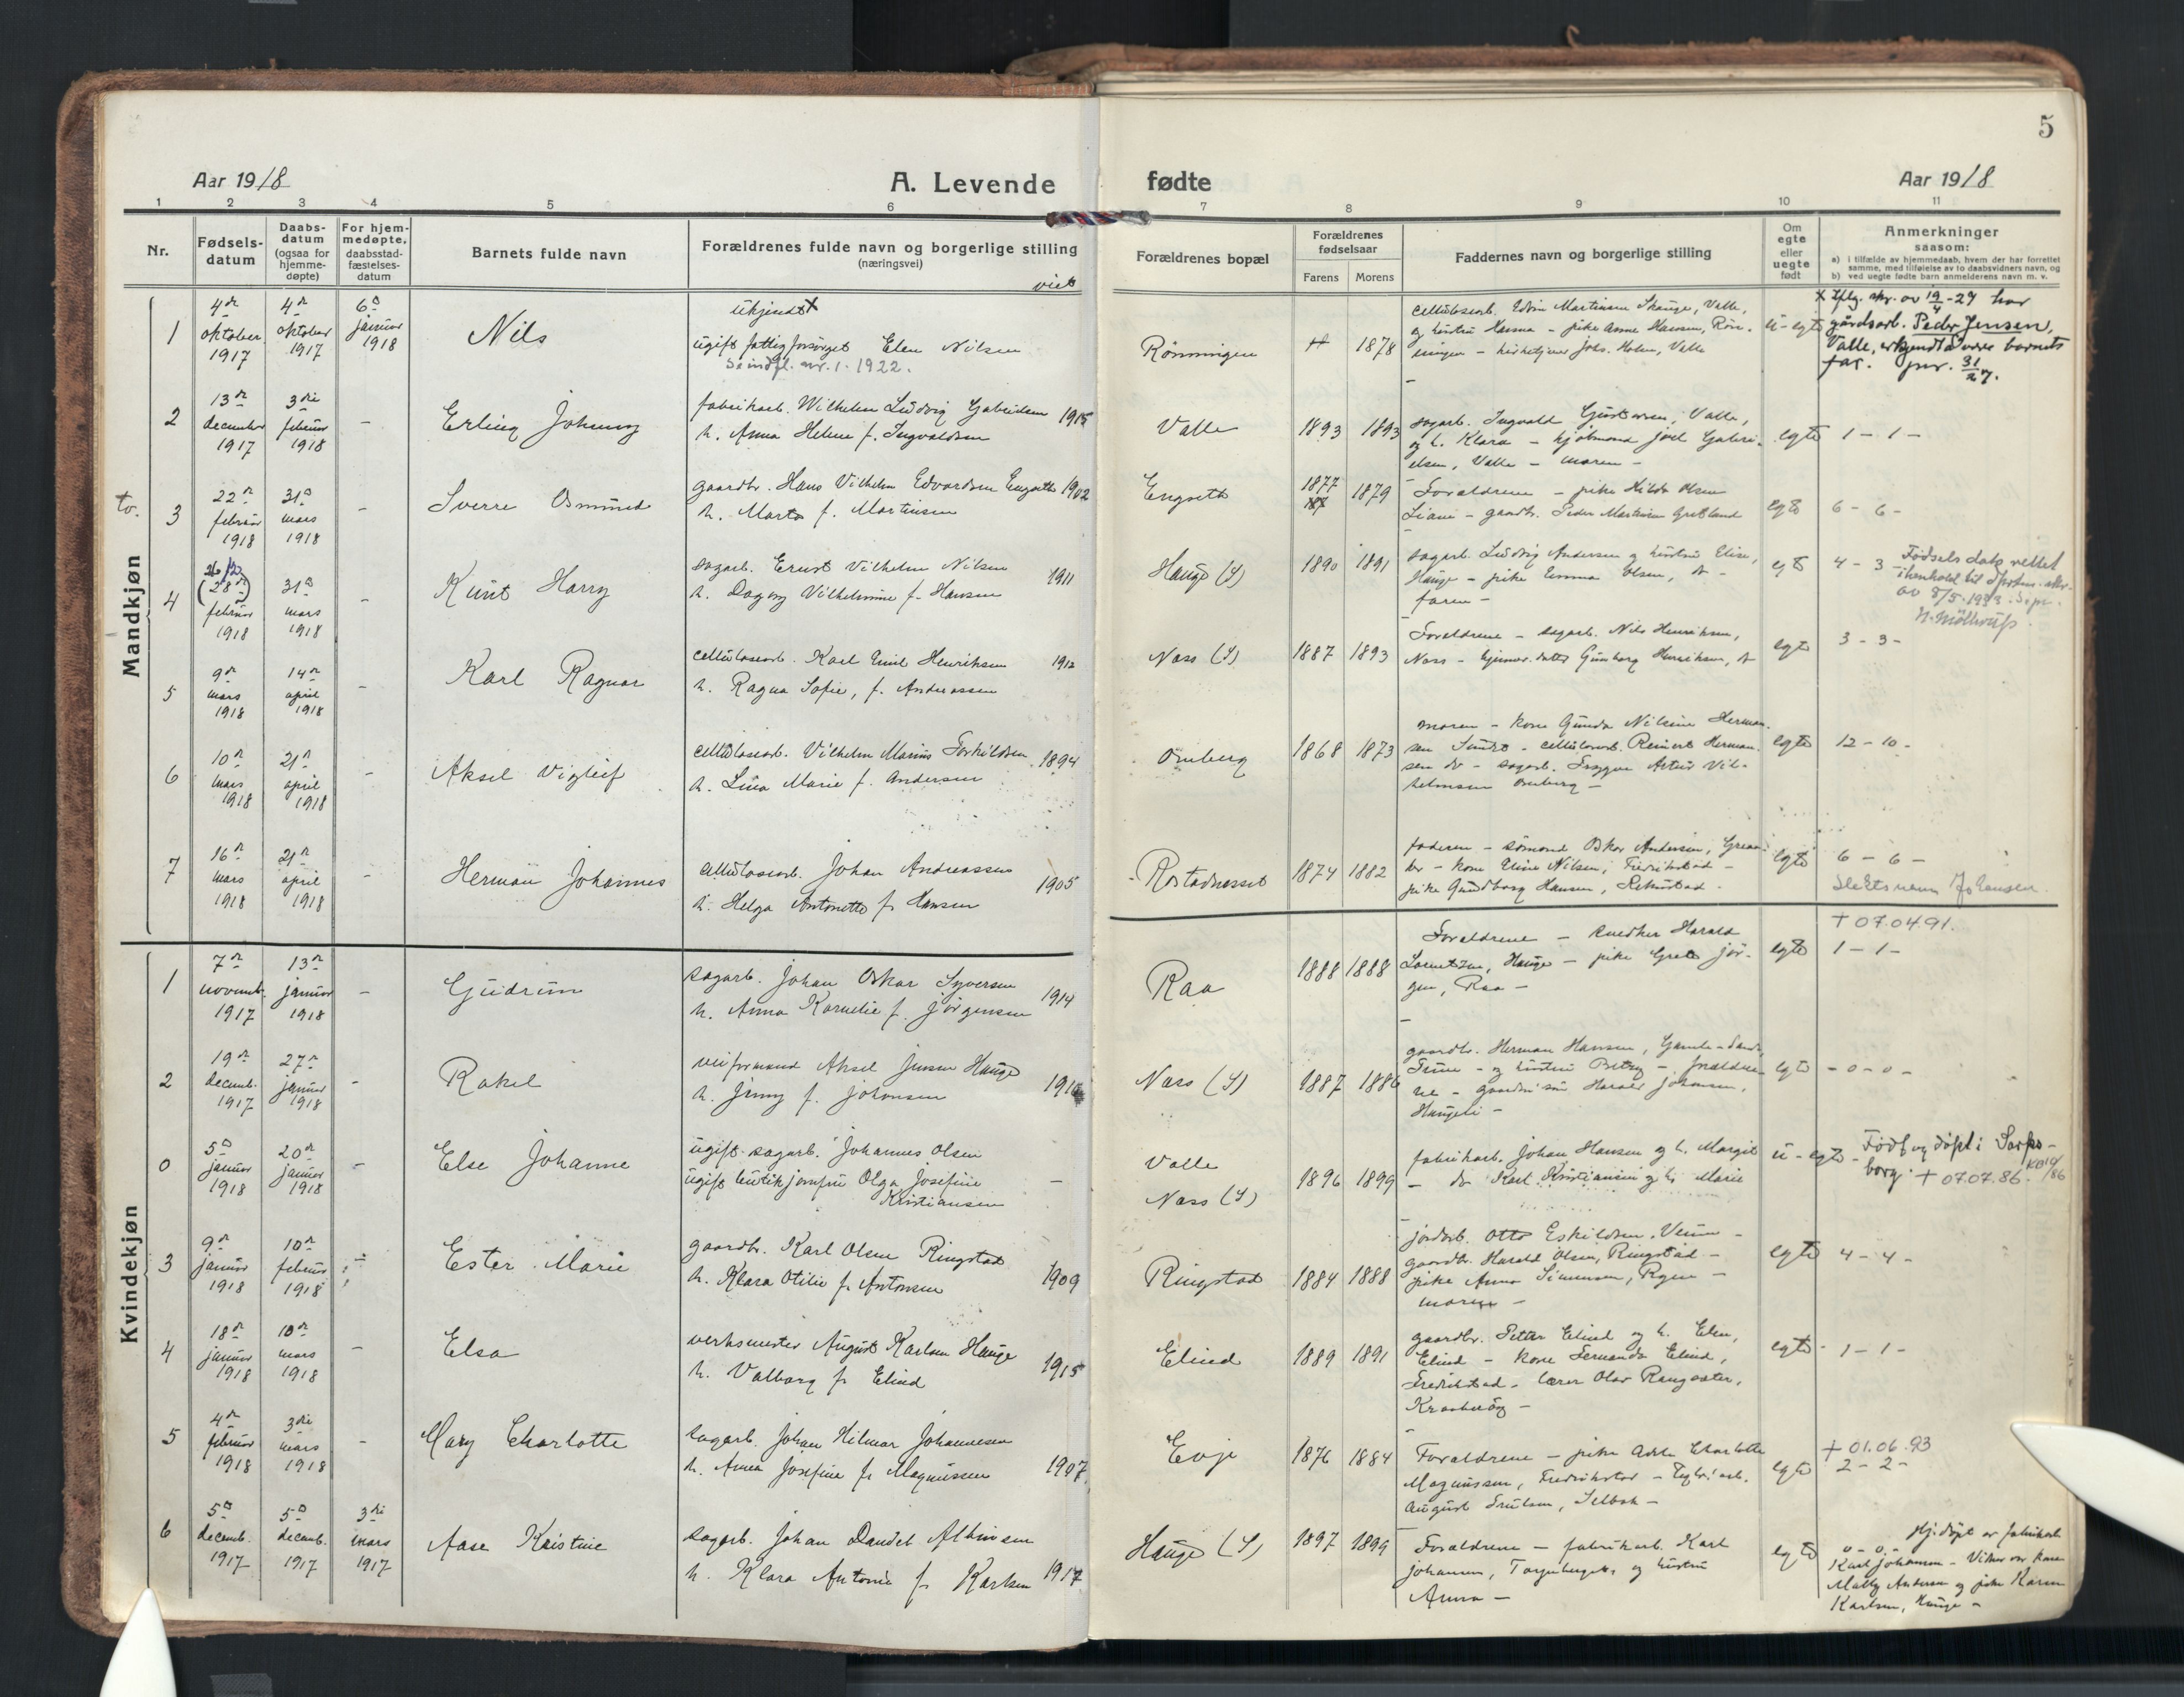 5
Aar 1918
A. Levende
fødte
Aar 1918
1 2 3 4 5 6 7 8 9 10 11
Nr.
Fødsels-
datum
Daabs-
datum
(ogsaa for
hjemme-
døpte)
For hjem-
medøpte,
daabsstad-
fæstelses-
datum
Barnets fulde navn
Forældrenes fulde navn og borgerlige stilling
(næringsvei)
viet
Forældrenes bopæl
Forældrenes
fødselsaar
Farens Morens
Faddernes navn og borgerlige stilling
Om
egte
eller
uegte
født
Anmerkninger
saasom:
a) i tilfælde av hjemmedaab, hvem der har forrettet
samme, med tilføielse av to daabsvidners navn, og
b) ved uegte fødte barn anmelderens navn m. v.
Mandkjøn
1
4de oktober 1917
4de oktober 1917
6te januar 1918
Nils
ukjendt x
ugift fattigforsørget Elen Nilsen
indfl. nr. 1. 1922.
Rönningen
1878
cellulosearb. Edvin Martinsen Skauge, Valle,
og hustru Hanna - pike Anne Hansen, Rön-
ningen - kirketjener Johs. Holm, Valle
u-egte
x Iflg. skr. av 19/4-27 har
gårdsarb. Peder Jensen,
Valle, erkjendt å være barnets
far. jnr. 31/27.
2
13de december 1917
3die februar 1918
-
Erling Johnny
fabrikarb. Wilhelm Ludvig Gabrielsen 1915
h. Anna Helene f. Ingvaldsen
Valle
1893 1893
sagarb. Ingvald Gustavsen, Valle,
og h. Klara - sjømand Joel Gabri-
elsen, Valle - moren -
egte
1 - 1 -
tv.
3
22de februar 1918
31te mars 1918
-
Sverre Osmund
gaardbr. Hans Vilhelm Edvardsen Engseth 1902
h. Marta f. Martinsen
Engseth
1877 1879
Forældrene - pike Hilda Olsen
Liane - gaardbr. Peder Martinsen Grefsland
egte
6 - 6 -
4
26/2
(28de) februar 1918
31te mars 1918
-
Knut Harry
sagarb. Ernst Vilhelm Nilsen 1911
h. Dagny Vilhelmine f. Hansen
Hauge (Y)
1890 1891
sagarb. Ludvig Andersen og hustru Elise,
Hauge - pike Emma Olsen, do -
faren -
egte
4 - 3 -
Fødsels dato rettet
i henhold til dep. skr.
av 8/5-1933.
5
9de mars 1918
14de april 1918
-
Karl Ragnar
cellulosearb. Karl Emil Henriksen 1912
h. Ragna Sofie, f. Andreassen
Næss (Y)
1887 1893
Forældrene - sagarb. Nils Henriksen,
Næss - hjemmev. datter Gunborg Henriksen, do
egte
3 - 3 -
6
10de mars 1918
21de april 1918
-
Aksel Vigleif
cellulosearb. Vilhelm Marius Torkildsen 1894
h. Lina Marie f. Andersen
Omberg
1868 1873
moren - kone Gunda Nilsine Herman-
sen Sundt - cellulosearb. Reinert Herman-
sen do - sagarb. Trygve Artur Vil-
helmsen Omberg -
egte
12 - 10 -
7
16de mars 1918
21de april 1918
-
Herman Johannes
cellulosearb. Johan Andreassen 1905
h. Helga Antonette f. Hansen
Rostadnesset
1874 1882
faderen - sømand Oskar Andersen,
- kone Eline Nilsen, Fredrikstad -
pike Gundborg Hansen,
egte
6 - 6 -
Slektsnavn Johansen.
Kvindekjøn
1
7de novemb. 1917
13de januar 1918
-
Gudrun
sagarb. Johan Oskar Syversen 1914
h. Anna Kornelie f. Jörgensen
Raa
1888 1888
Forældrene - snedker Harald
Lorentzen, Hauge - pike Grete Jör-
gen, Raa -
egte
† 07.04.91.
1 - 1 -
2
19de decemb. 1917
27de januar 1918
-
Rakel
veiformand Aksel Jensen Hauge
h. Jenny f. Johansen
Næss (Y)
1887 1886
gaardbr. Herman Hansen, Gamle-
- og hustru Betzy - foreldre-
ne - gaardbr.søn Harald Johansen,
Haugeli -
egte
- 0 - 0 -
0
5te januar 1918
20de januar 1918
-
Else Johanne
ugift sagarb. Johannes Olsen
ugift butikjomfru Olga Josefine
Kristiansen
-
Valle
Næss (Y)
1896 1899
fabrikarb. Johan Hansen og h. Margit
- do Karl Kristiansen og h. Marie
u-egte -
Født og döpt i Sarps-
borg. † 07.07.86.
3
9de januar 1918
10de februar 1918
Ester Marie
gaardbr. Karl Olsen Ringstad 1909
h. Klara Otilie f. Antonsen
Ringstad
1884 1888
jordarb. Otto Eskildsen, Veum -
gaardbr. Harald Olsen, Ringstad -
pike Anna Simensen, Rygen -
moren -
egte
4 - 4 -
4
18de januar 1918
10de mars 1918
-
Elsa
verksmester August Karlsen Hauge 1915
h. Valborg f. Elind
Elind
1889 1891
gaardbr. Petter Elind og h. Elen,
Elind - kone Fernanda Elind,
Fredrikstad - lærer Olav Rangsæter,
Kraakerøy -
egte
1 - 1 -
5
4de februar 1918
3die mars 1918
-
Mary Charlotte
sagarb. Johan Hilmar Johannesen 1907
h. Anna Josefine f. Magnussen
Evje
1876 1884
Forældrene - pike Adele Charlotte
Magnussen, Fredrikstad - Teglv.arb.
August Trulsen, Selbak -
egte
† 01.06.93
2 - 2 -
6
5te decemb. 1917
5te decemb. 1917
3die mars 1917
Aase Kristine
sagarb. Johan Daniel Albinsen 1917
h. Klara Antonie f. Karlsen
Hauge (Y)
1897 1899
Forældrene - fabrikarb. Karl
Johansen, Torgenberget, og hustru
Anna -
egte
0 - 0 -
Hj. døpt av fabrikarb
Karl Johansen - Vidner var kone
Mally Andersen og pike Karen
Karlsen, Hauge -